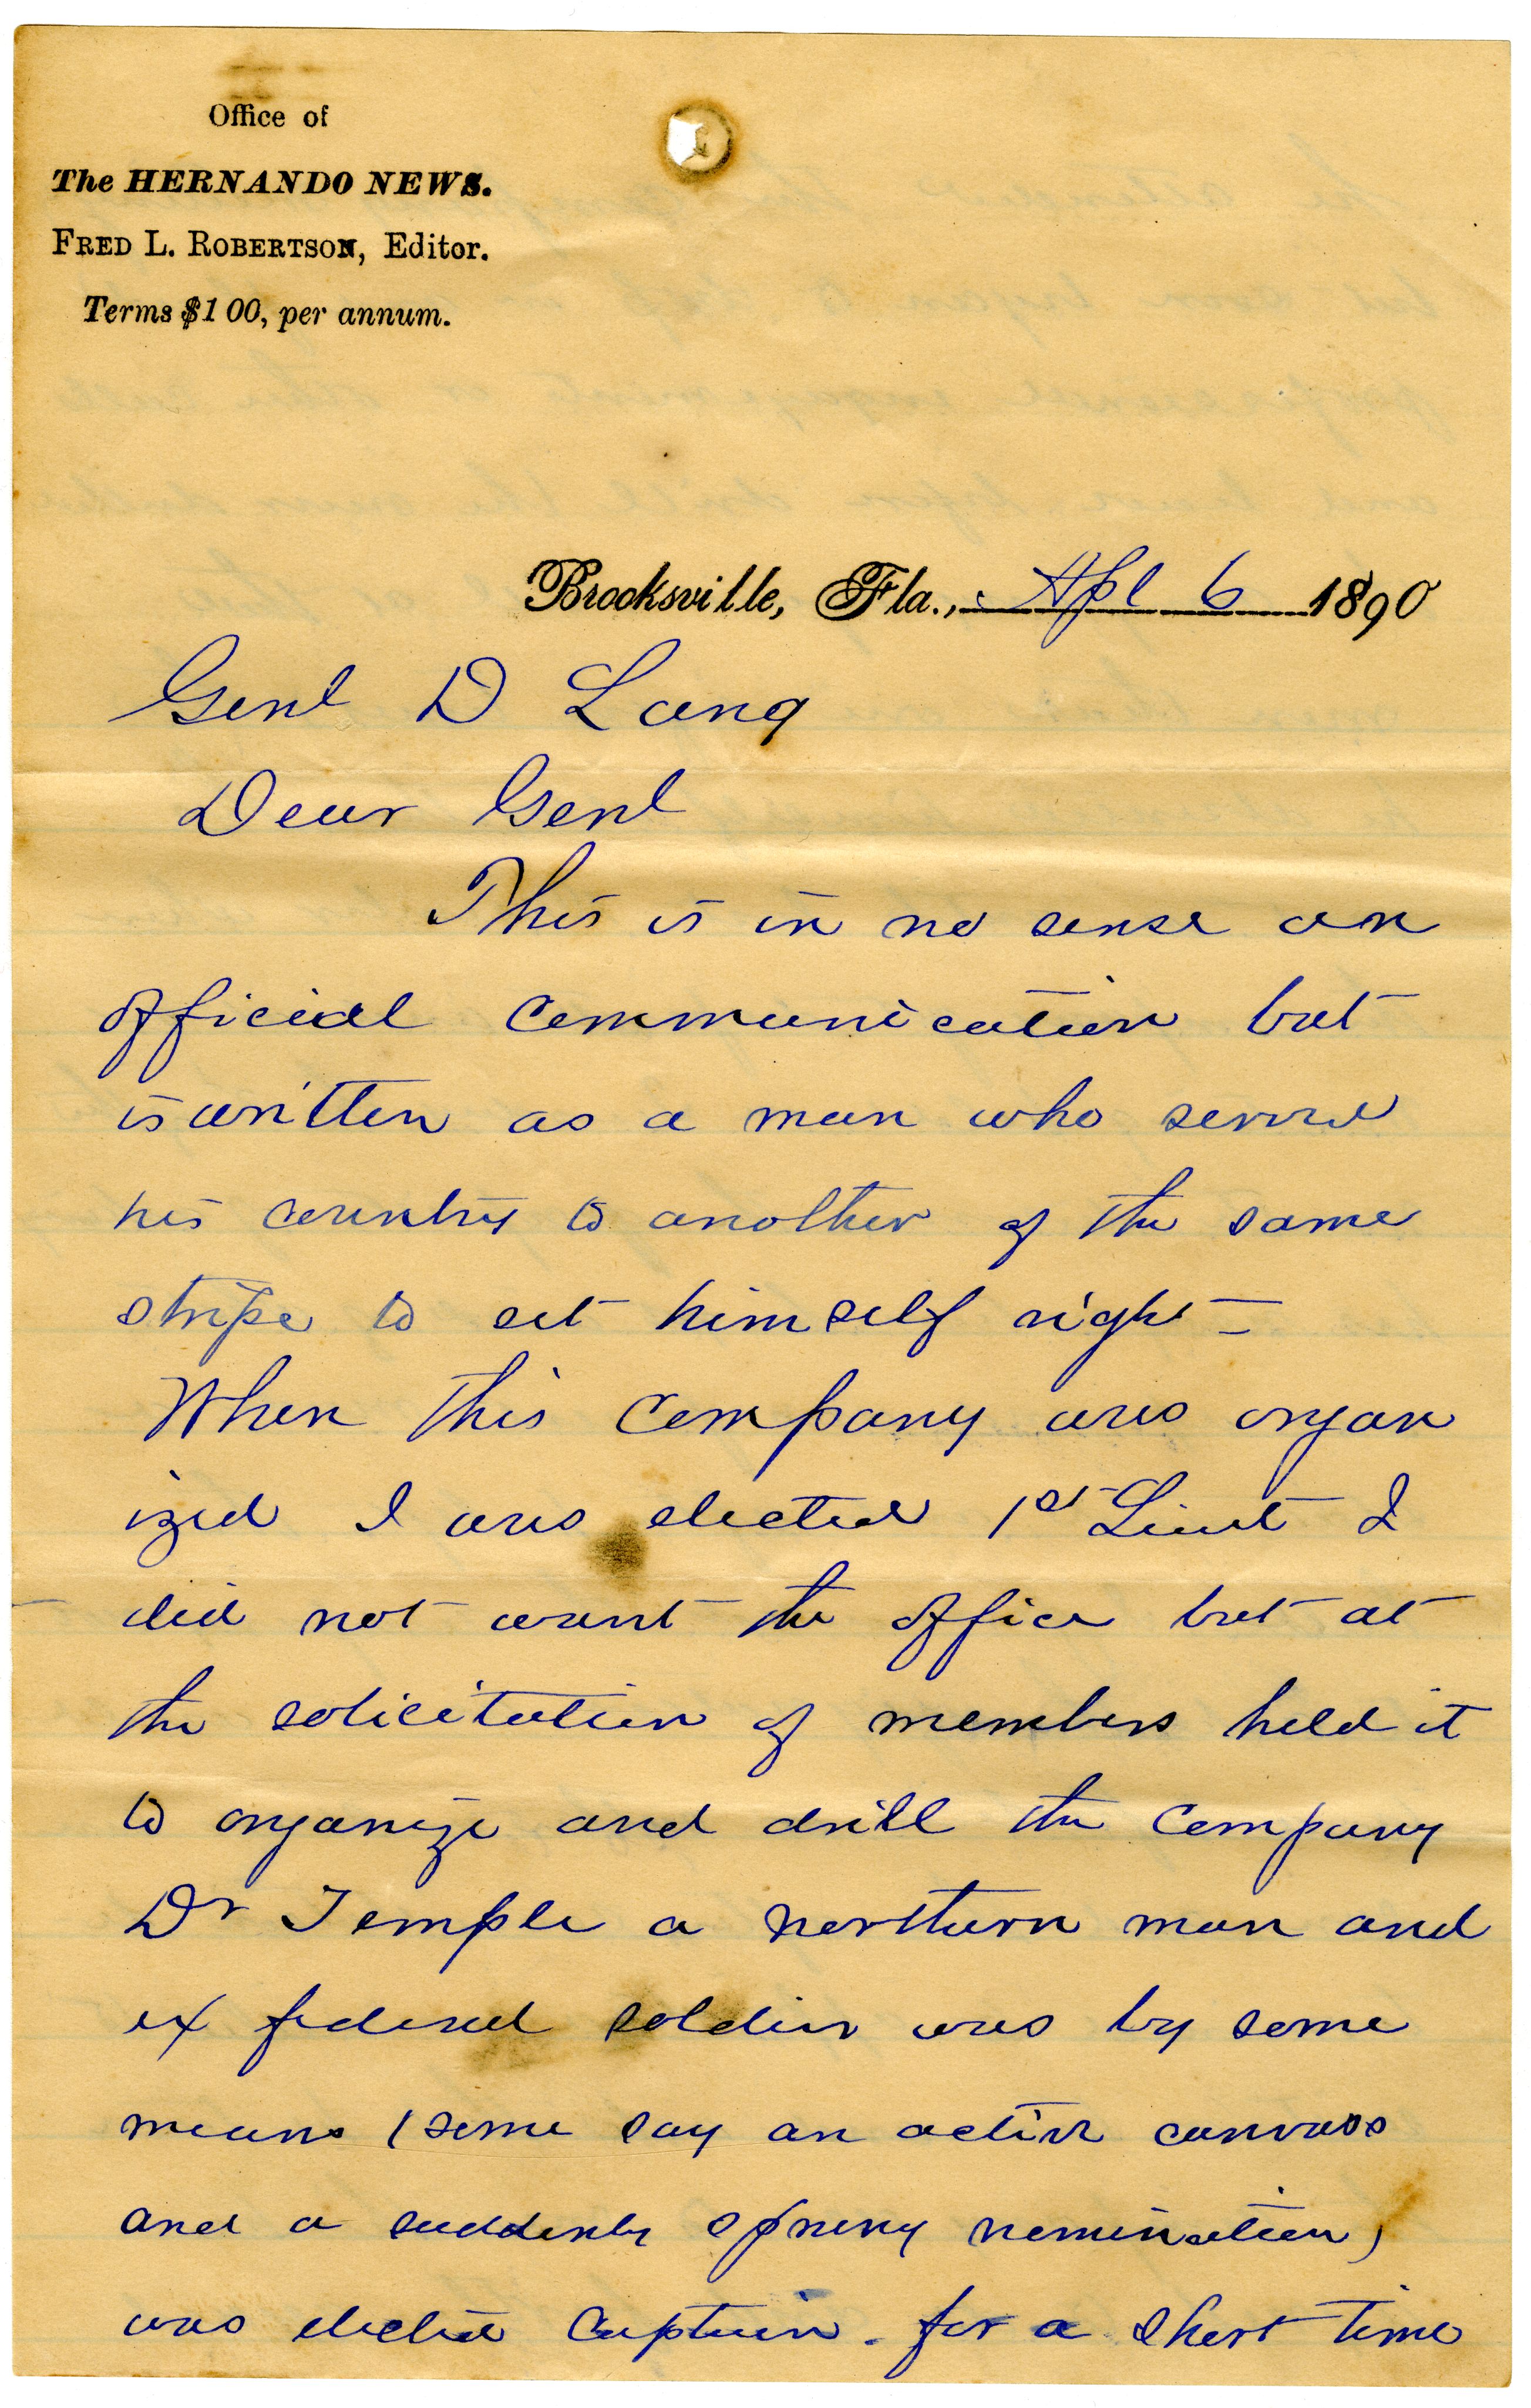 Office of
The HERNANDO NEWS.
FRED L. ROBERTSON, Editor.
Terms $1 00, per annum.
Brooksville, Fla., Apl 6 1890
Genl D Lang
Dear Genl
This is in no sense an
official communication but
is written as a man who served
his country to another of the same
stripe to set himself right —
When this company was organ
ized I was elected 1st Lieut I
did not want the office but at
the solicitation of members held it
to organize and drill the company
Dr Temple a northern man and
ex federal soldier was by some
means (some say an active canvass
and a suddenly sprung nomination)
was elected Captain. for a short time